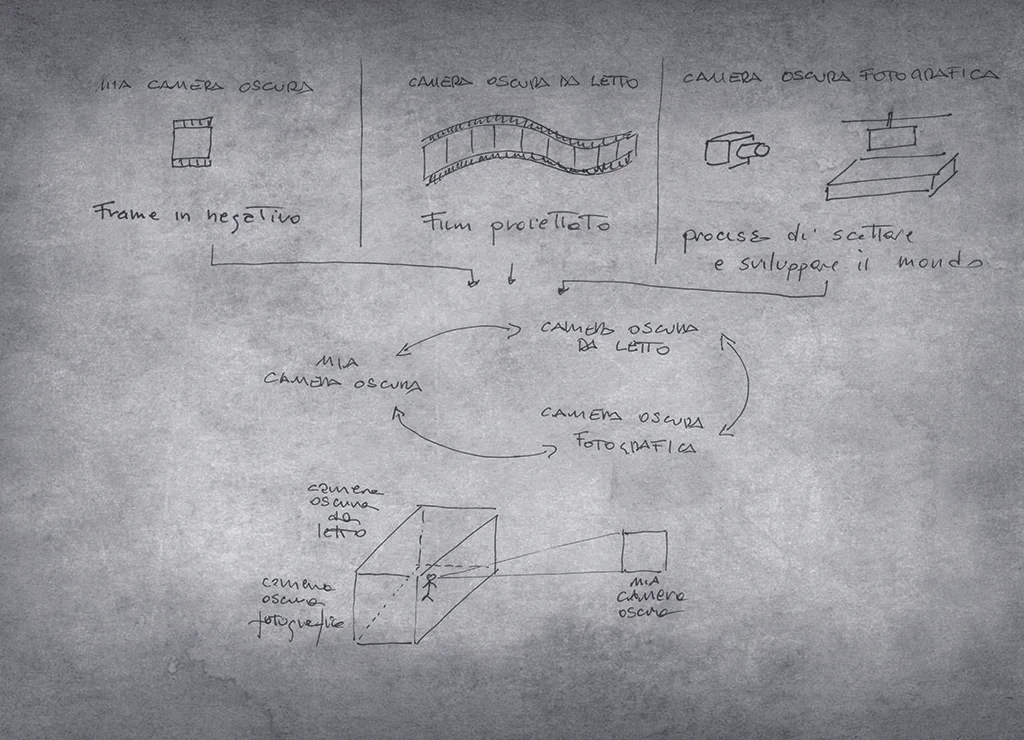 MIA CAMERA OSCURA
CAMERA OSCURA DA LETTO
CAMERA OSCURA FOTOGRAFICA
Frame in negativo
Film proiettato
di scattare
e sviluppare il mondo
CAMERA OSCURA
DA LETTO
MIA
CAMERA OSCURA
CAMERA OSCURA
FOTOGRAFICA
camera
oscura
da
letto
camera
oscura
fotografica
MIA
camera
oscura